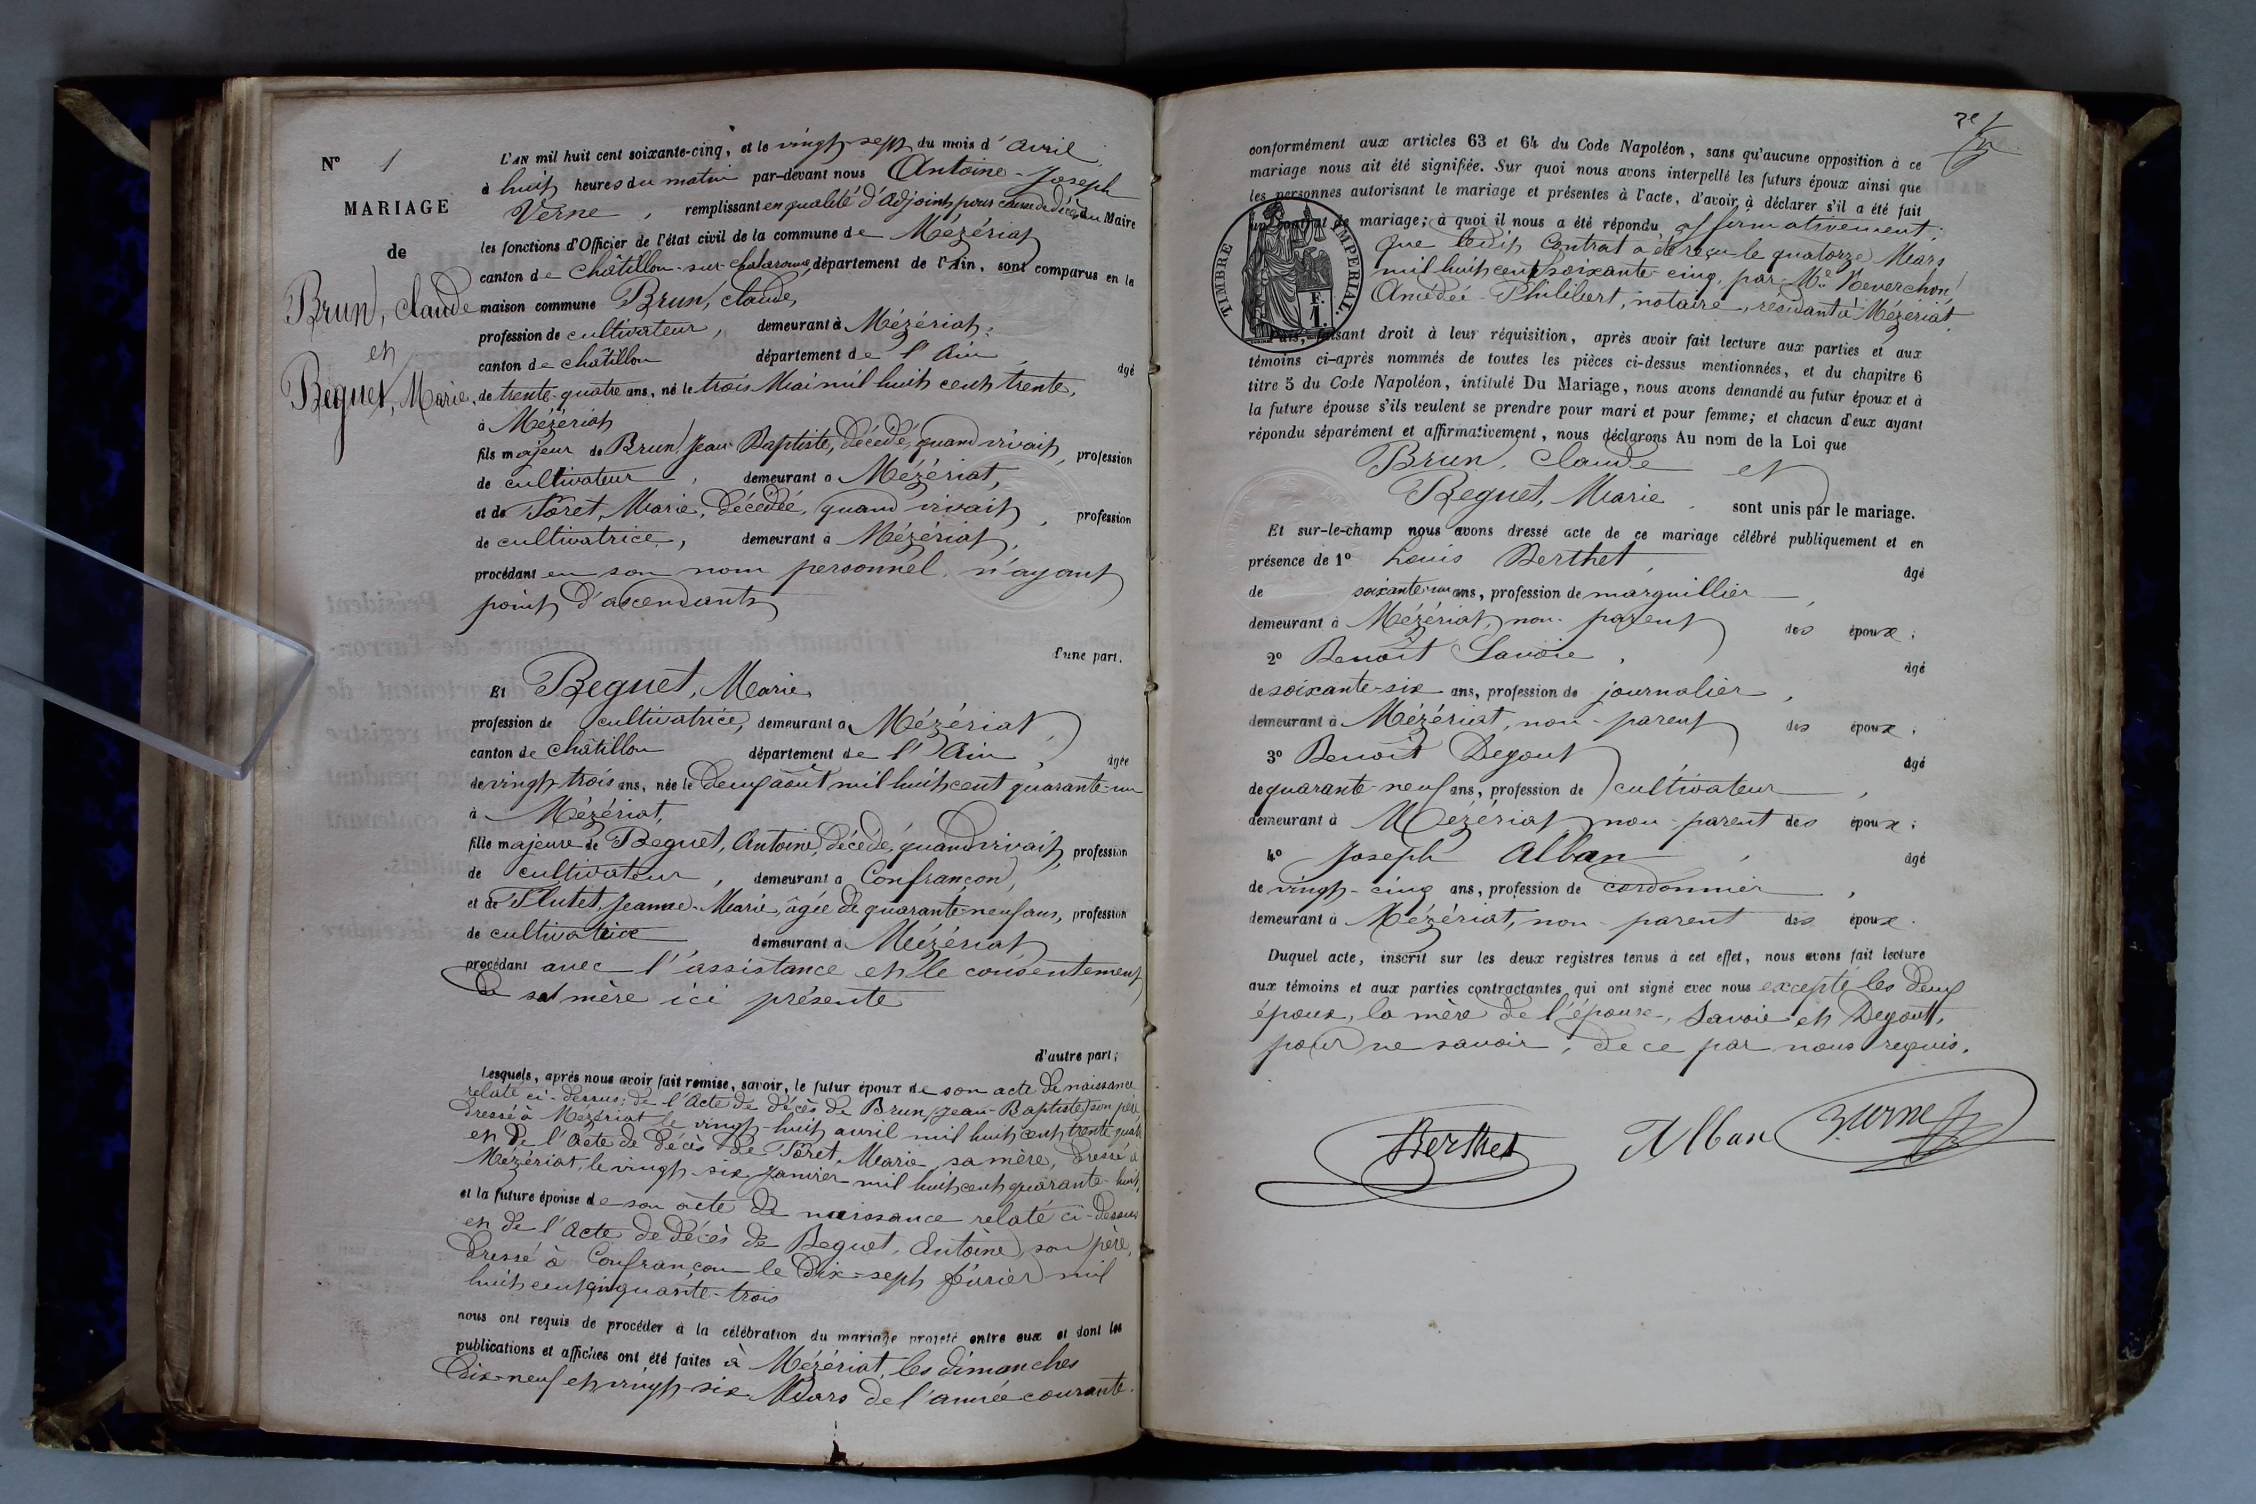 N° 1
MARIAGE
de
Brun, Claude
et
Beguet, Marie
L'AN mil huit cent soixante-cinq, et le vingt-sept du mois d'avril,
à huit heures du matin par-devant nous Antoine-Joseph
Verne, remplissant en qualité d'Adjoint, pour cause de décès du Maire
les fonctions d'Officier de l'état civil de la commune de Mézériat
canton de Châtillon-sur-Chalaronne, département de l'Ain, sont comparus en la
maison commune Brun, Claude,
profession de cultivateur, demeurant à Mézériat,
canton de Châtillon département de l'Ain, âgé
de trente-quatre ans, né le trois Mai mil huit cent trente,
à Mézériat
fils majeur de Brun, Jean Baptiste, décédé, quand vivait, profession
de cultivateur, demeurant à Mézériat,
et de Foret, Marie, décédée, quand vivait, profession
de cultivatrice, demeurant à Mézériat,
procédant en son nom personnel, n'ayant
point d'ascendants
d'une part.
Et Beguet, Marie,
profession de cultivatrice, demeurant à Mézériat,
canton de Châtillon département de l'Ain, âgée
de vingt-trois ans, née le deux août mil huit cent quarante-un
à Mézériat,
fille majeure de Beguet, Antoine, décédé, quand vivait, profession
de cultivateur, demeurant à Confrançon,
et de Flutet, Jeanne-Marie, âgée de quarante-neuf ans, profession
de cultivatrice, demeurant à Mézériat
procédant avec l'assistance et le consentement
de sa mère ici présente
d'autre part;
Lesquels, après nous avoir fait remise, savoir, le futur époux de son acte de naissance
relaté ci-dessus; de l'Acte de décès de Brun, Jean-Baptiste, son père,
dressé à Mézériat le vingt-huit avril mil huit cent trente quatre
et de l'Acte de décès de Foret, Marie, sa mère, dressé à
Mézériat, le vingt-six Janvier mil huit cent quarante-huit,
et la future épouse de son acte de naissance relaté ci-dessus
et de l'Acte de décès de Beguet, Antoine, son père,
dressé à Confrançon le dix-sept février mil
huit cent cinquante-trois
nous ont requis de procéder à la célébration du mariage projeté entre eux et dont les
publications et affiches ont été faites à Mézériat, les dimanches
dix-neuf et vingt-six Mars de l'année courante.
conformément aux articles 63 et 64 du Code Napoléon, sans qu'aucune opposition à ce
mariage nous ait été signifiée. Sur quoi nous avons interpellé les futurs époux ainsi que
les personnes autorisant le mariage et présentes à l'acte, d'avoir à déclarer s'il a été fait
un contrat de mariage; à quoi il nous a été répondu affirmativement;
que ledit Contrat a été reçu le quatorze Mars
mil huit cent soixante-cinq, par Me Reverchon,
Amédée-Philibert, notaire, résidant à Mézériat.
TIMBRE IMPERIAL.
F.
1.
Puis, faisant droit à leur réquisition, après avoir fait lecture aux parties et aux
témoins ci-après nommés de toutes les pièces ci-dessus mentionnées, et du chapitre 6
titre 5 du Code Napoléon, intitulé Du Mariage, nous avons demandé au futur époux et à
la future épouse s'ils veulent se prendre pour mari et pour femme; et chacun d'eux ayant
répondu séparément et affirmativement, nous déclarons Au nom de la Loi que
Brun, Claude et
Beguet, Marie sont unis par le mariage.
Et sur-le-champ nous avons dressé acte de ce mariage célébré publiquement et en
présence de 1° Louis Berthet, âgé
de soixante ans, profession de marguillier,
demeurant à Mézériat, non-parent des époux;
2° Benoît Savoie, âgé
de soixante-six ans, profession de journalier,
demeurant à Mézériat, non-parent des époux;
3° Benoît Degout âgé
de quarante-neuf ans, profession de cultivateur,
demeurant à Mézériat non-parent des époux;
4° Joseph Alban, âgé
de vingt-cinq ans, profession de cordonnier,
demeurant à Mézériat, non-parent des époux.
Duquel acte, inscrit sur les deux registres tenus à cet effet, nous avons fait lecture
aux témoins et aux parties contractantes qui ont signé avec nous excepté les deux
époux, la mère de l'épouse, Savoie et Degout,
pour ne savoir, de ce par nous requis.
Berthet Alban Verne